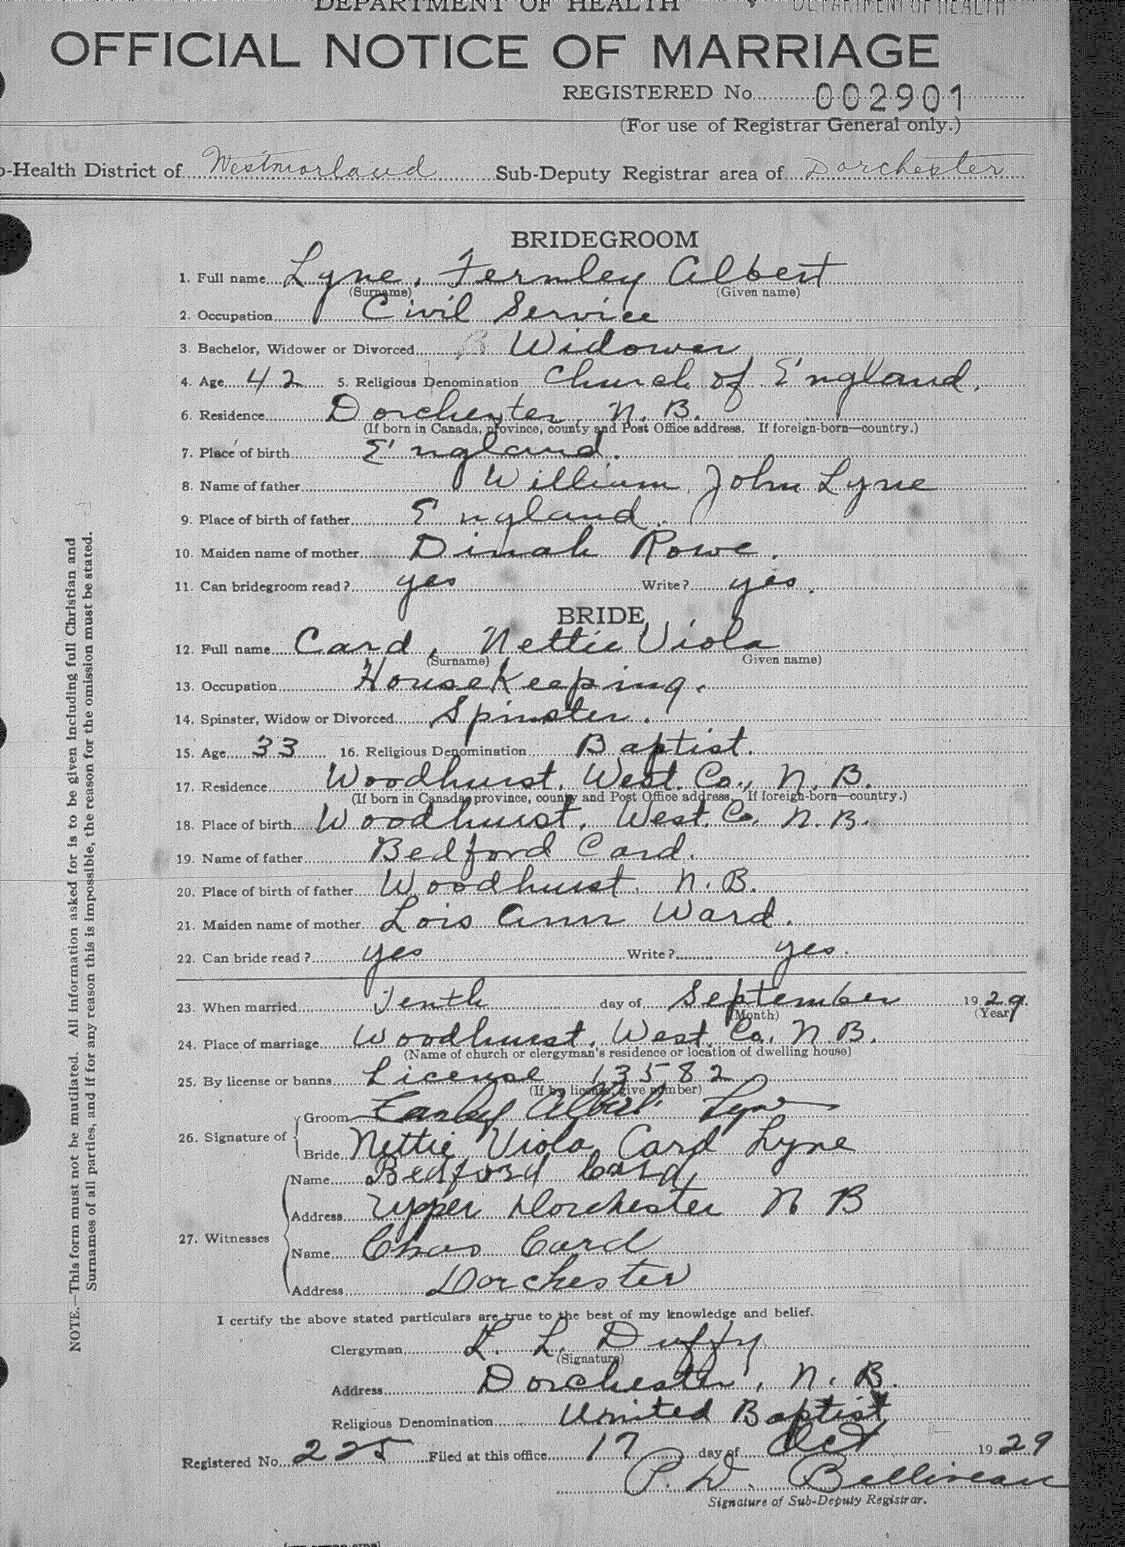 DEPARTMENT OF HEALTH DEPARTMENT OF HEALTH
OFFICIAL NOTICE OF MARRIAGE
REGISTERED No. 002901
(For use of Registrar General only.)
-Health District of Westmorland Sub-Deputy Registrar area of Dorchester
BRIDEGROOM
1. Full name Lyne, Fernley Albert
(Surname) (Given name)
2. Occupation Civil Service
3. Bachelor, Widower or Divorced B Widower
4. Age 42 5. Religious Denomination Church of England.
6. Residence Dorchester, N. B.
(If born in Canada, province, county and Post Office address. If foreign-born—country.)
7. Place of birth England.
8. Name of father William John Lyne
9. Place of birth of father England.
10. Maiden name of mother Dinah Rowe.
11. Can bridegroom read? yes Write? yes.
BRIDE
12. Full name Card, Nettie Viola
(Surname) Given name)
13. Occupation HouseKeeping.
14. Spinster, Widow or Divorced Spinster.
15. Age 33 16. Religious Denomination Baptist.
17. Residence Woodhurst, West. Co., N. B.
(If born in Canada, province, county and Post Office address. If foreign-born—country.)
18. Place of birth Woodhurst, West. Co. N. B.
19. Name of father Bedford Card.
20. Place of birth of father Woodhurst, N. B.
21. Maiden name of mother Lois Ann Ward.
22. Can bride read? yes Write? yes.
23. When married Tenth day of September 1929.
(Month) (Year)
24. Place of marriage Woodhurst, West. Co. N. B.
(Name of church or clergyman's residence or location of dwelling house)
25. By license or banns License 13582
(If by license give number)
26. Signature of
Groom Albert Lyne
Bride Nettie Viola Card Lyne
27. Witnesses
Name Bedford Card
Address Upper Dorchester N B
Name Chas Card
Address Dorchester
I certify the above stated particulars are true to the best of my knowledge and belief.
Clergyman L. Duffy
(Signature)
Address Dorchester, N. B.
Religious Denomination United Baptist
Registered No. 225 Filed at this office 17 day of Oct 1929
P. D. Belliveau
Signature of Sub-Deputy Registrar.
NOTE.—This form must not be mutilated. All information asked for is to be given including full Christian and
Surnames of all parties, and if for any reason this is impossible, the reason for the omission must be stated.